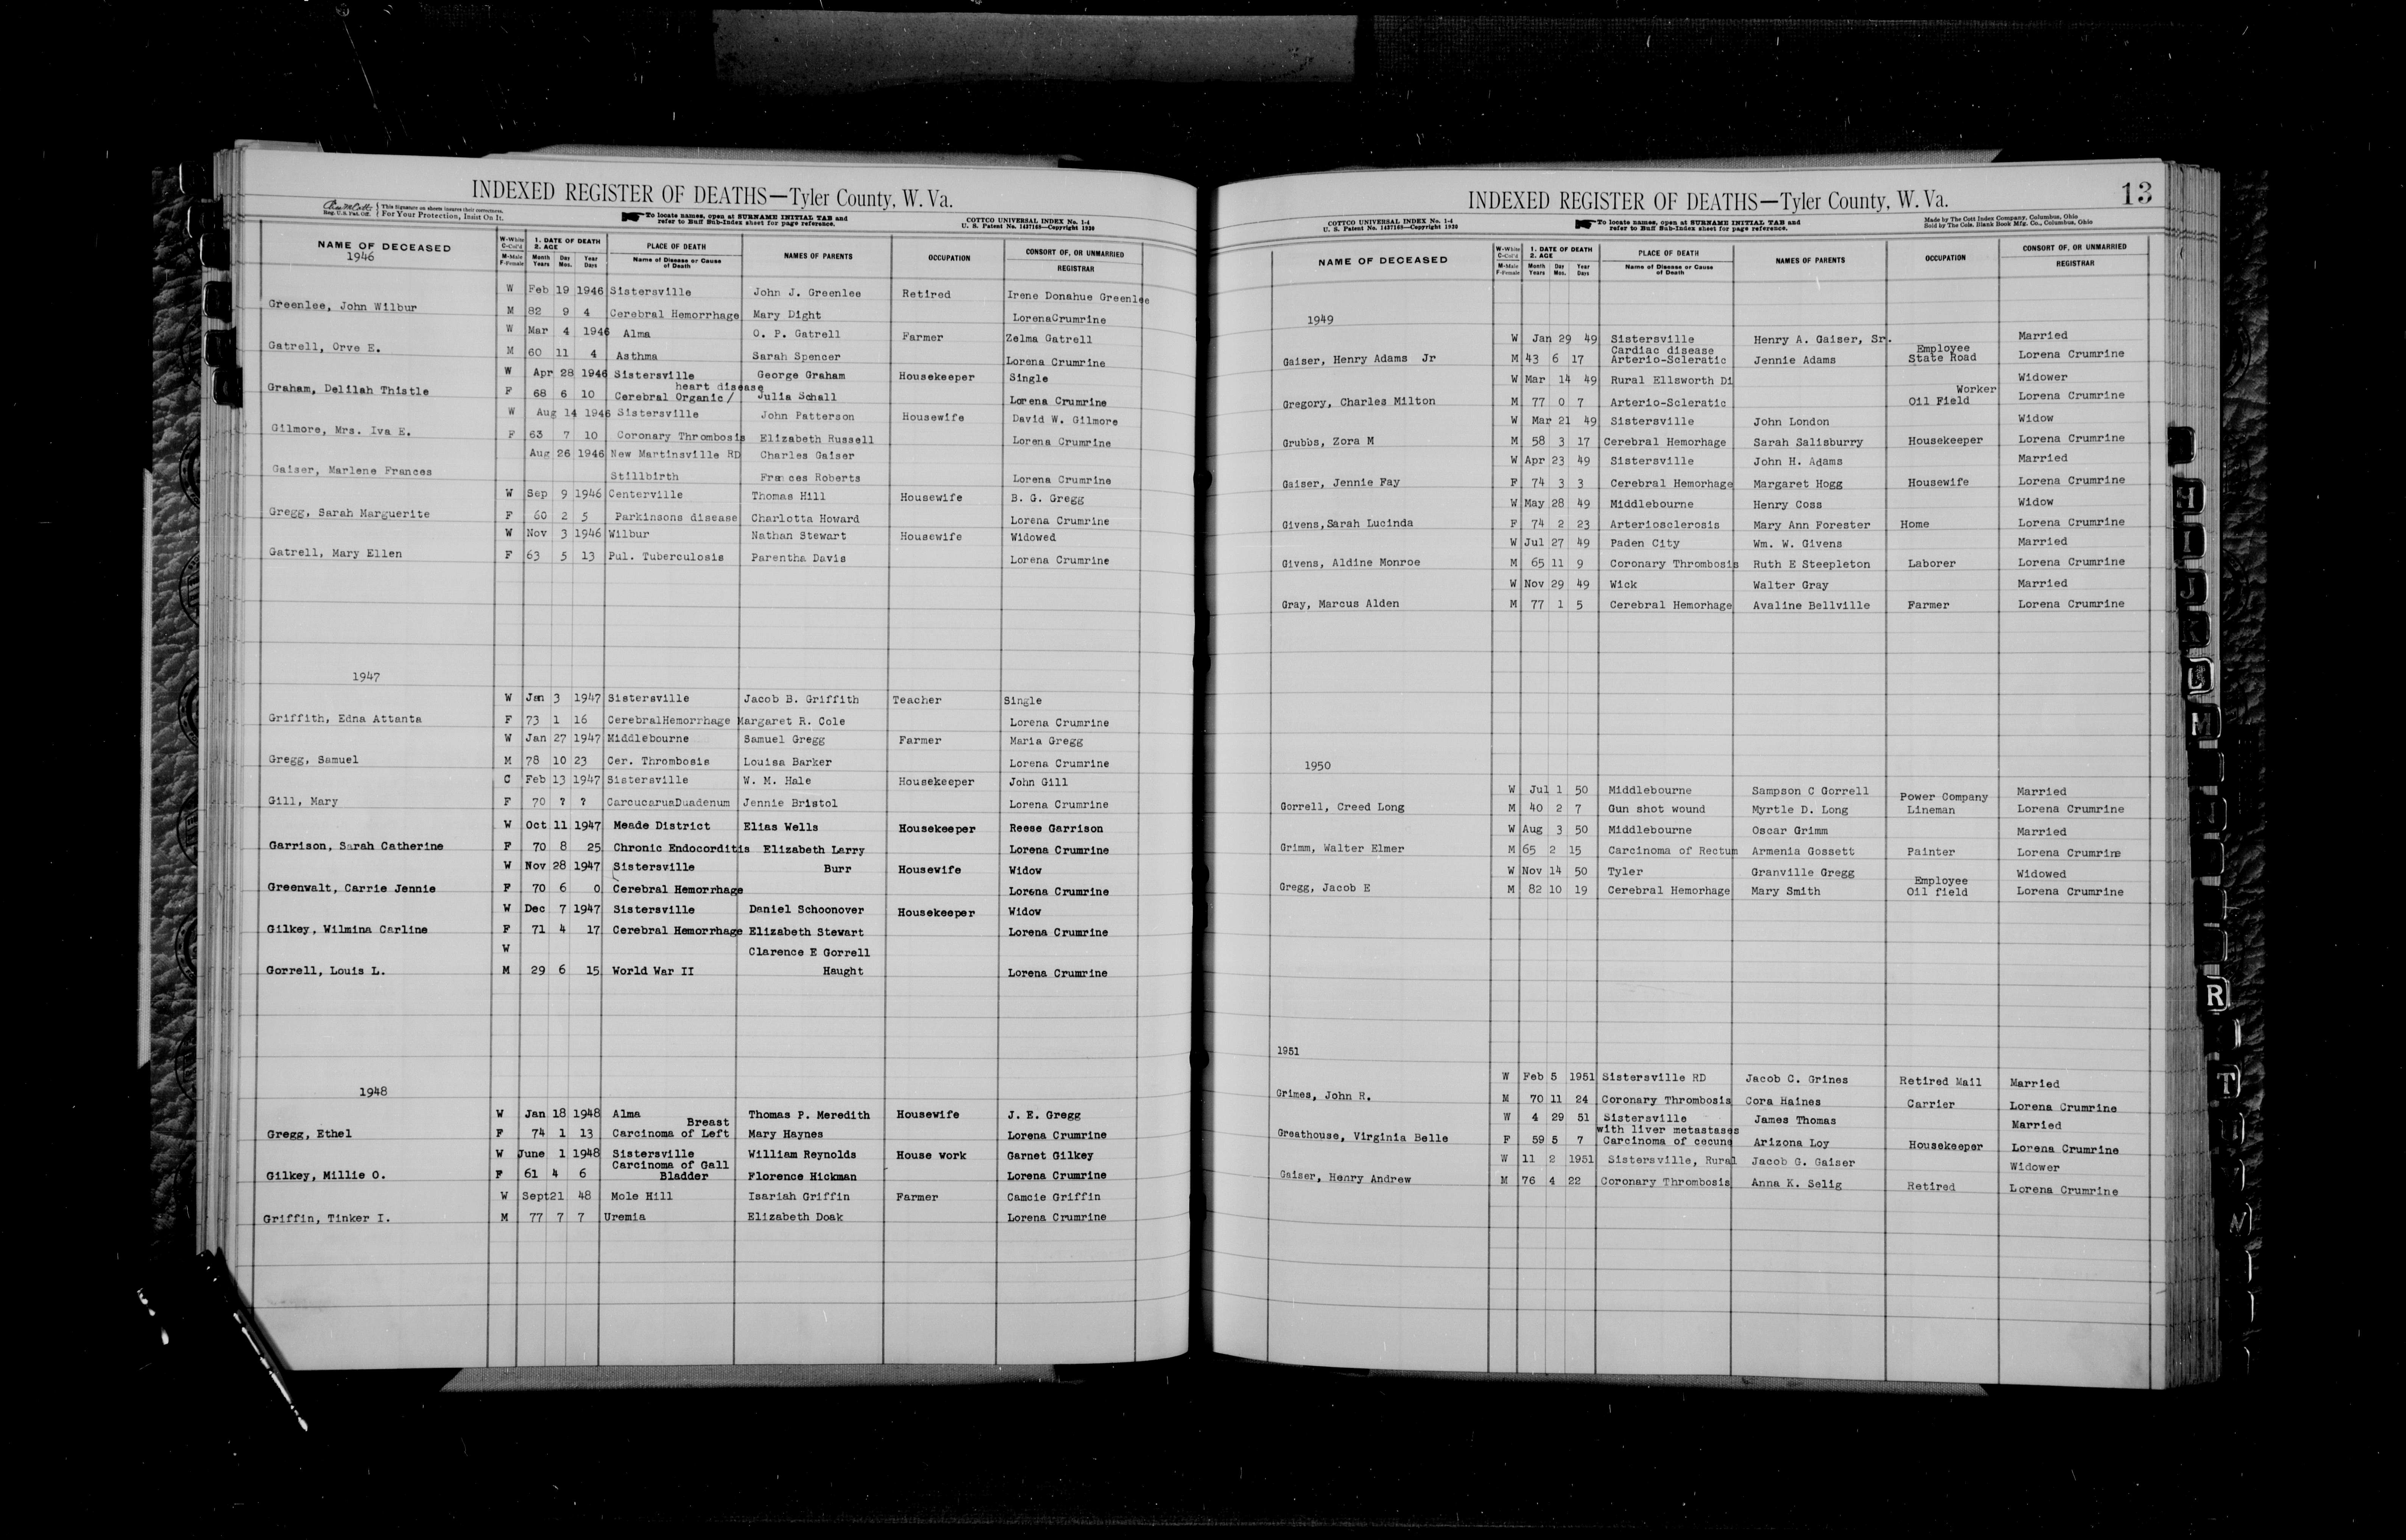 INDEXED REGISTER OF DEATHS—Tyler County, W. Va.
Reg. U.S. Pat. Off. { This Signature on sheets insures their correctness. For Your Protection, Insist On It.
To locate names, open at SURNAME INITIAL TAB and refer to Buff Sub-Index sheet for page reference.
COTTCO UNIVERSAL INDEX No. 1-4
U. S. Patent No. 1437169—Copyright 1930
NAME OF DECEASED W-White C-Col'd M-Male F-Female 1. DATE OF DEATH 2. AGE Month Day Year Years Mos. Days PLACE OF DEATH Name of Disease or Cause of Death NAMES OF PARENTS OCCUPATION CONSORT OF, OR UNMARRIED REGISTRAR
1946
W Feb 19 1946 Sistersville John J. Greenlee Retired Irene Donahue Greenlee
Greenlee, John Wilbur M 82 9 4 Cerebral Hemorrhage Mary Dight LorenaCrumrine
W Mar 4 1946 Alma O. P. Gatrell Farmer Zelma Gatrell
Gatrell, Orve E. M 60 11 4 Asthma Sarah Spencer Lorena Crumrine
W Apr 28 1946 Sistersville George Graham Housekeeper Single
heart disease
Graham, Delilah Thistle F 68 6 10 Cerebral Organic/ Julia Schall Lorena Crumrine
W Aug 14 1946 Sistersville John Patterson Housewife David W. Gilmore
Gilmore, Mrs. Iva E. F 63 7 10 Coronary Thrombosis Elizabeth Russell Lorena Crumrine
Aug 26 1946 New Martinsville RD Charles Gaiser
Gaiser, Marlene Frances Stillbirth Frances Roberts Lorena Crumrine
W Sep 9 1946 Centerville Thomas Hill Housewife B. G. Gregg
Gregg, Sarah Marguerite F 60 2 5 Parkinsons disease Charlotta Howard Lorena Crumrine
W Nov 3 1946 Wilbur Nathan Stewart Housewife Widowed
Gatrell, Mary Ellen F 63 5 13 Pul. Tuberculosis Parentha Davis Lorena Crumrine
1947
W Jan 3 1947 Sistersville Jacob B. Griffith Teacher Single
Griffith, Edna Attanta F 73 1 16 CerebralHemorrhage Margaret R. Cole Lorena Crumrine
W Jan 27 1947 Middlebourne Samuel Gregg Farmer Maria Gregg
Gregg, Samuel M 78 10 23 Cer. Thrombosis Louisa Barker Lorena Crumrine
C Feb 13 1947 Sistersville W. M. Hale Housekeeper John Gill
Gill, Mary F 70 ? ? CarcucaruaDuadenum Jennie Bristol Lorena Crumrine
W Oct 11 1947 Meade District Elias Wells Housekeeper Reese Garrison
Garrison, Sarah Catherine F 70 8 25 Chronic Endocorditis Elizabeth Larry Lorena Crumrine
W Nov 28 1947 Sistersville Burr Housewife Widow
Greenwalt, Carrie Jennie F 70 6 0 Cerebral Hemorrhage Lorena Crumrine
W Dec 7 1947 Sistersville Daniel Schoonover Housekeeper Widow
Gilkey, Wilmina Carline F 71 4 17 Cerebral Hemorrhage Elizabeth Stewart Lorena Crumrine
W Clarence E Gorrell
Gorrell, Louis L. M 29 6 15 World War II Haught Lorena Crumrine
1948
W Jan 18 1948 Alma Thomas P. Meredith Housewife J. E. Gregg
Breast
Gregg, Ethel F 74 1 13 Carcinoma of Left Mary Haynes Lorena Crumrine
W June 1 1948 Sistersville William Reynolds House work Garnet Gilkey
Carcinoma of Gall
Gilkey, Millie O. F 61 4 6 Bladder Florence Hickman Lorena Crumrine
W Sept21 48 Mole Hill Isariah Griffin Farmer Camcie Griffin
Griffin, Tinker I. M 77 7 7 Uremia Elizabeth Doak Lorena Crumrine
INDEXED REGISTER OF DEATHS—Tyler County, W. Va. 13
COTTCO UNIVERSAL INDEX No. 1-4
U. S. Patent No. 1437169—Copyright 1930
To locate names, open at SURNAME INITIAL TAB and refer to Buff Sub-Index sheet for page reference.
Made by The Cott Index Company, Columbus, Ohio
Sold by The Cols. Blank Book Mfg. Co., Columbus, Ohio
NAME OF DECEASED W-White C-Col'd M-Male F-Female 1. DATE OF DEATH 2. AGE Month Day Year Years Mos. Days PLACE OF DEATH Name of Disease or Cause of Death NAMES OF PARENTS OCCUPATION CONSORT OF, OR UNMARRIED REGISTRAR
1949
W Jan 29 49 Sistersville Henry A. Gaiser, Sr. Married
Cardiac disease Employee
Gaiser, Henry Adams Jr M 43 6 17 Arterio-Scleratic Jennie Adams State Road Lorena Crumrine
W Mar 14 49 Rural Ellsworth Di Widower
Worker
Gregory, Charles Milton M 77 0 7 Arterio-Scleratic Oil Field Lorena Crumrine
W Mar 21 49 Sistersville John London Widow
Grubbs, Zora M M 58 3 17 Cerebral Hemorhage Sarah Salisburry Housekeeper Lorena Crumrine
W Apr 23 49 Sistersville John H. Adams Married
Gaiser, Jennie Fay F 74 3 3 Cerebral Hemorhage Margaret Hogg Housewife Lorena Crumrine
W May 28 49 Middlebourne Henry Coss Widow
Givens,Sarah Lucinda F 74 2 23 Arteriosclerosis Mary Ann Forester Home Lorena Crumrine
W Jul 27 49 Paden City Wm. W. Givens Married
Givens, Aldine Monroe M 65 11 9 Coronary Thrombosis Ruth E Steepleton Laborer Lorena Crumrine
W Nov 29 49 Wick Walter Gray Married
Gray, Marcus Alden M 77 1 5 Cerebral Hemorhage Avaline Bellville Farmer Lorena Crumrine
1950
W Jul 1 50 Middlebourne Sampson C Gorrell Power Company Married
Gorrell, Creed Long M 40 2 7 Gun shot wound Myrtle D. Long Lineman Lorena Crumrine
W Aug 3 50 Middlebourne Oscar Grimm Married
Grimm, Walter Elmer M 65 2 15 Carcinoma of Rectum Armenia Gossett Painter Lorena Crumrine
W Nov 14 50 Tyler Granville Gregg Employee Widowed
Gregg, Jacob E M 82 10 19 Cerebral Hemorhage Mary Smith Oil field Lorena Crumrine
1951
W Feb 5 1951 Sistersville RD Jacob C. Grines Retired Mail Married
Grimes, John R. M 70 11 24 Coronary Thrombosis Cora Haines Carrier Lorena Crumrine
W 4 29 51 Sistersville James Thomas Married
with liver metastases
Greathouse, Virginia Belle F 59 5 7 Carcinoma of cecund Arizona Loy Housekeeper Lorena Crumrine
W 11 2 1951 Sistersville, Rural Jacob G. Gaiser Widower
Gaiser, Henry Andrew M 76 4 22 Coronary Thrombosis Anna K. Selig Retired Lorena Crumrine
H
I
J
M
R
T